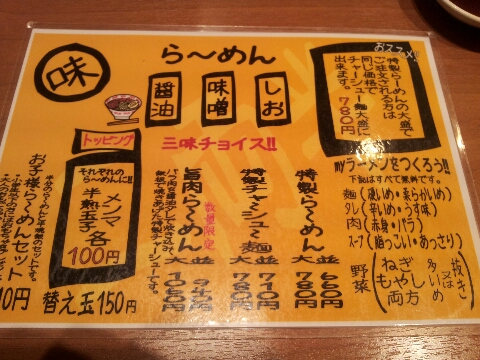 味
らーめん
醤油
味噌
しお
三味チョイス!!
おススメ!!
特製らーめんの大盛で
ご注文される方は
同じ価格で
チャーシュー麺大盛に
出来ます。
780円
myラーメンをつくろう!!
下記はすべて無料です。
麺(硬いめ・柔らかいめ)
タレ(辛いめ・うす味)
肉(赤身・バラ)
スープ(脂っこい・あっさり)
野菜(ねぎ もやし 両方 多いめ 又は 抜き)
特製らーめん
並 660円
大 780円
特製チャーシュー麺
並 710円
大 780円
数量限定
旨肉らーめん
大 1080円
トッピング
それぞれの
らーめんに!!
メンマ
半熟玉子
各
100円
お子様らーめんセット
替え玉150円
10円